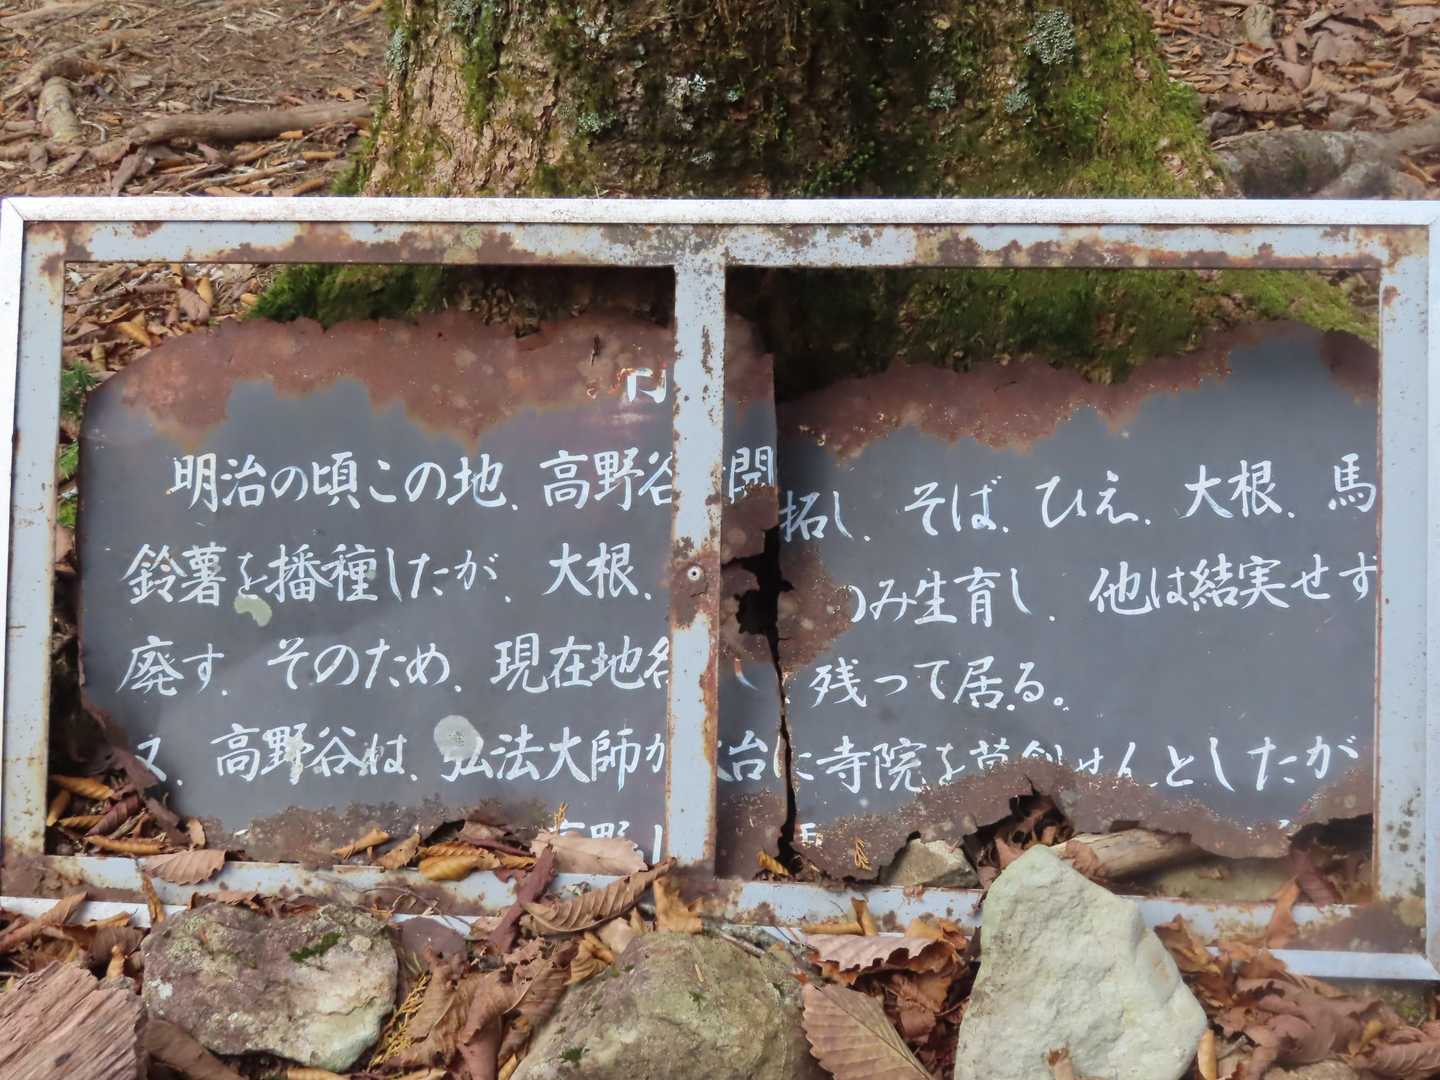 明治の頃この地、高野谷 開拓し、そば、ひえ、大根、馬
鈴薯を播種したが、大根、 のみ生育し、他は結実せず
廃す。そのため、現在地名 残って居る。
又、高野谷は、弘法大師が 台に寺院を草創せんとしたが
高野